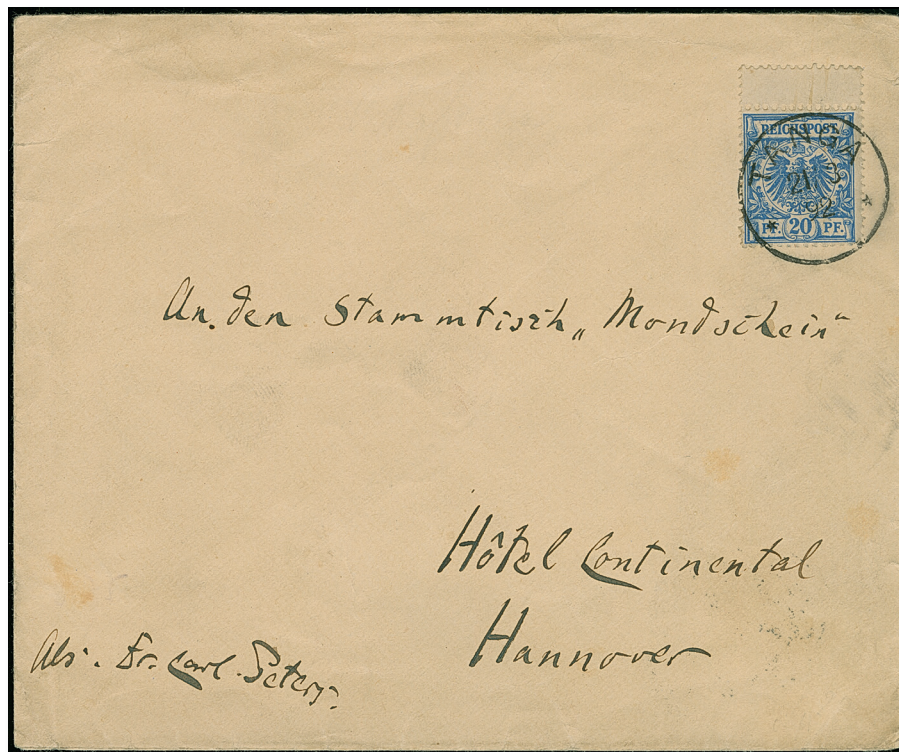 REICHSPOST.
TANGA
21 3
92
PF. 20 PF.
An den Stammtisch „Mondschein“
Hôtel Continental
Hannover
Abs. Dr. Carl Peters.